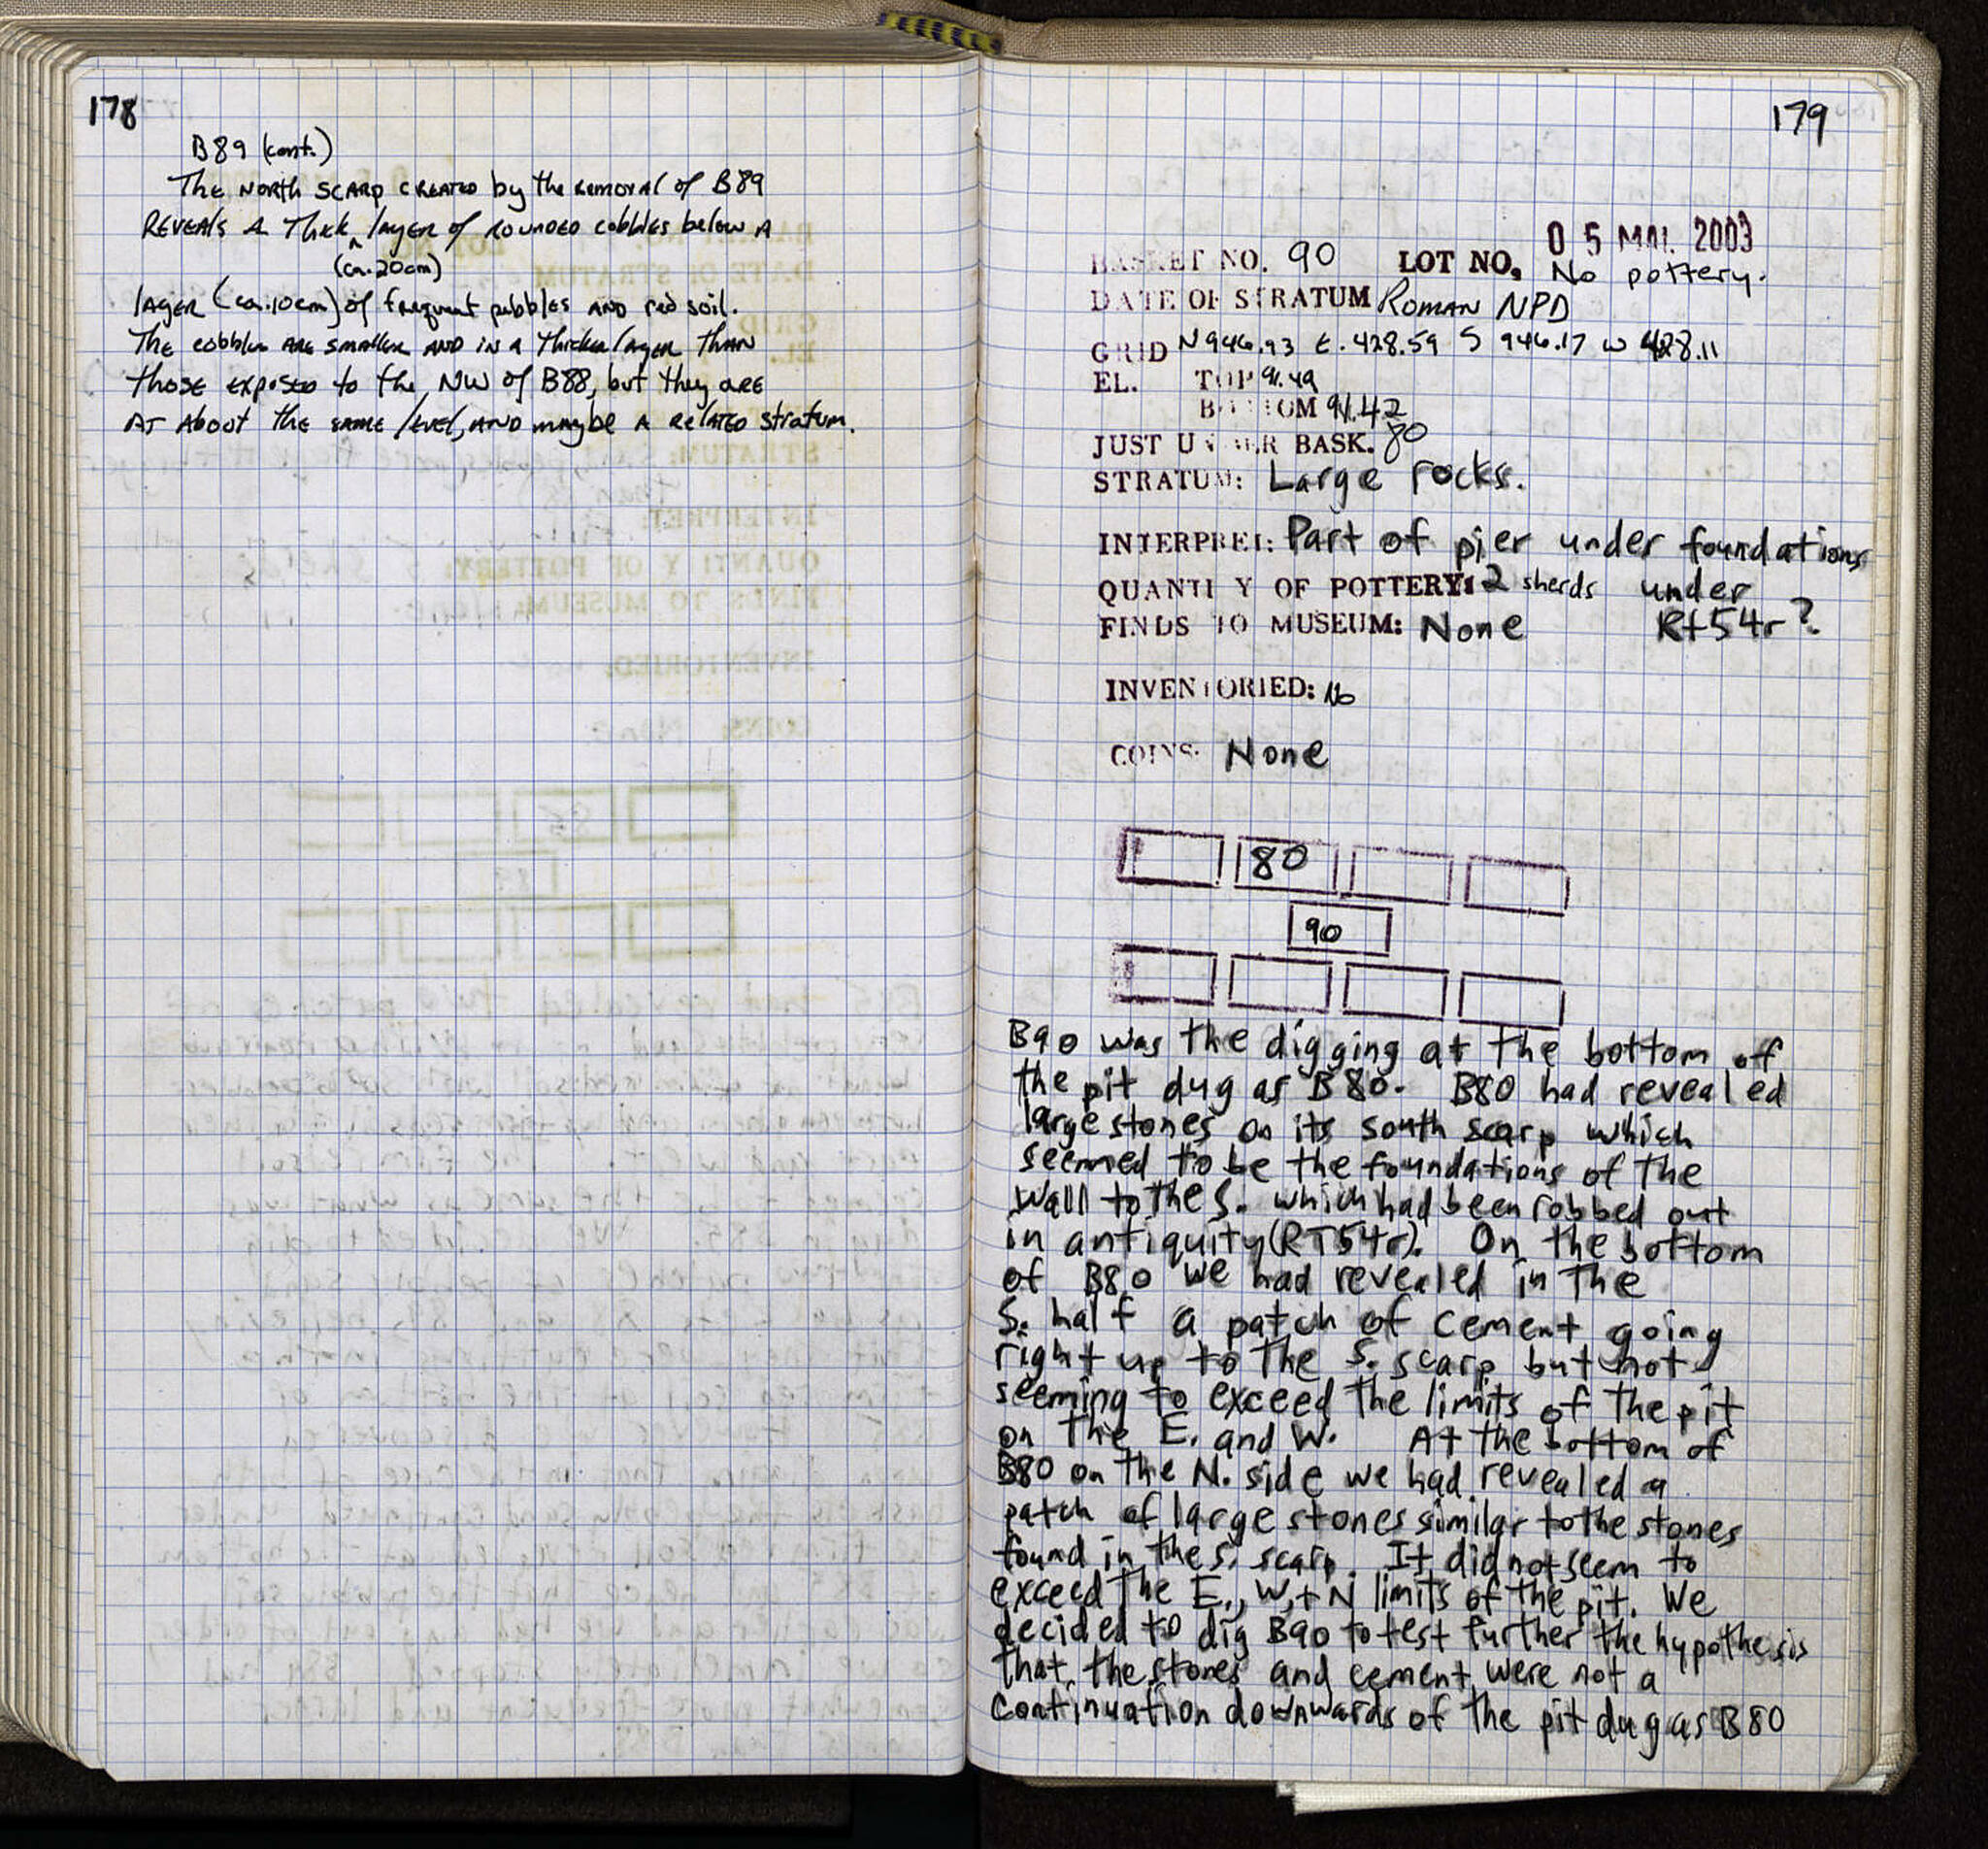 178
B89 (cont.)
The North scarp created by the removal of B89
reveals a thick layer of rounded cobbles below a
(ca. 20cm)
layer (ca. 10cm) of frequent pebbles and red soil.
The cobbles are smaller and in a thicker layer than
those exposed to the NW of B88, but they are
at about the same level, and maybe a related stratum.
179
05 MAI. 2003
BASKET NO. 90 LOT NO. No pottery.
DATE OF STRATUM Roman NPD
GRID N 946.93 E. 428.59 S 946.17 W 428.11
EL. TOP 91.49
BOTTOM 91.42
JUST UNDER BASK. 80
STRATUM: Large rocks.
INTERPRET: Part of pier under foundations
QUANTITY OF POTTERY: 2 sherds under
FINDS TO MUSEUM: None Rt54r?
INVENTORIED: No
COINS: None
80
90
B90 was the digging at the bottom of
the pit dug as B80. B80 had revealed
large stones on its south scarp which
seemed to be the foundations of the
wall to the S. which had been robbed out
in antiquity (RT54r). On the bottom
of B80 we had revealed in the
S. half a patch of cement going
right up to the S. scarp but not
seeming to exceed the limits of the pit
on the E. and W. At the bottom of
B80 on the N. side we had revealed a
patch of large stones similar to the stones
found in the S. scarp. It did not seem to
exceed the E., W, + N limits of the pit. We
decided to dig B90 to test further the hypothesis
that the stones and cement were not a
continuation downwards of the pit dug as B80